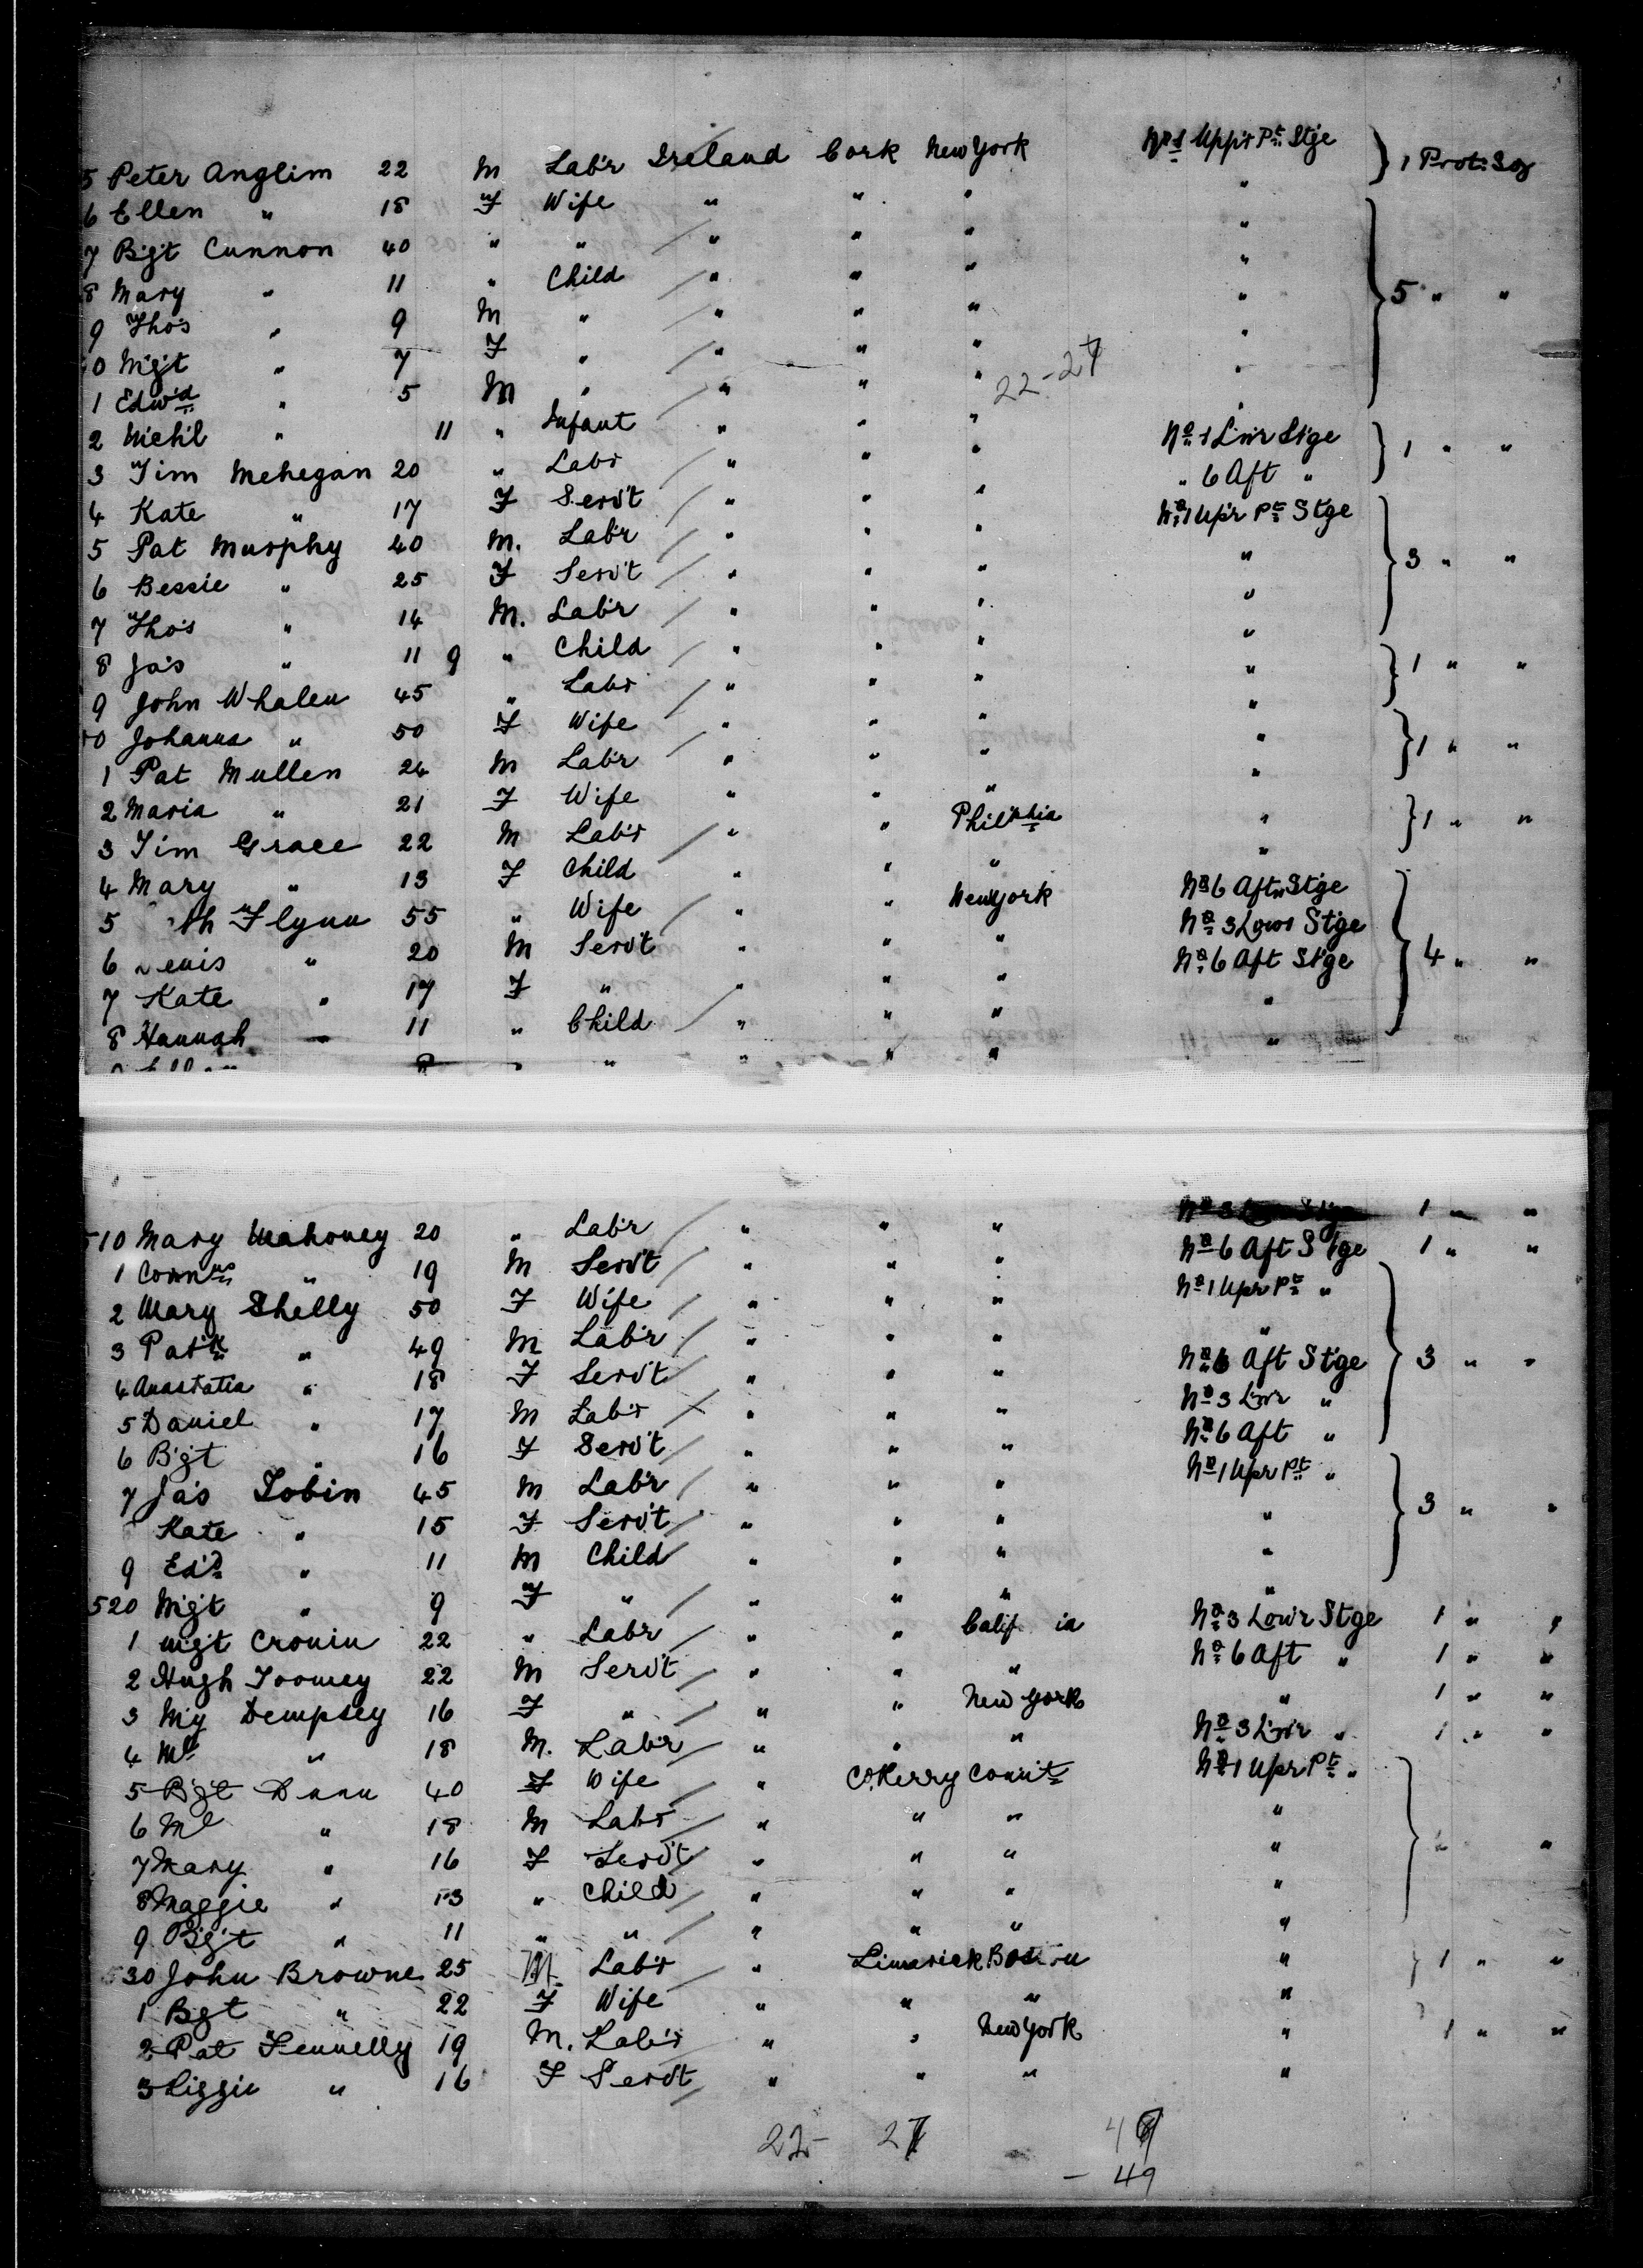 5 Peter Anglim 22 M Lab'r Ireland Cork New York No 1 Upp'r Pt Stge } 1 Prot: Sog
6 Ellen " 18 F Wife " " " "
7 Bgt Cunnon 40 " " " " " "
8 Mary " 11 " Child " " " "
9 Thos " 9 M " " " " " } 5 " "
0 Mgt " 7 F " " " " "
1 Edw'd " 5 M " " " " 22-27 "
2 Michl " 11 " Infant " " " "
3 Tim Mehegan 20 " Labr " " " No 1 Lw'r Stge } 1 " "
4 Kate " 17 F Servt " " " " 6 Aft "
5 Pat Murphy 40 M. Lab'r " " " No 1 Up'r Pt Stge
6 Bessie " 25 F Servt " " " " } 3 " "
7 Thos " 14 M. Lab'r " " " "
8 Jas " 11 9 " Child " " " "
9 John Whalen 45 " Labr " " " " } 1 " "
0 Johanna " 50 F Wife " " " "
1 Pat Mullen 24 M Lab'r " " " " } 1 " "
2 Maria " 21 F Wife " " " "
3 Tim Grace 22 M Lab'r " " Phil'phia " } 1 " "
4 Mary " 13 F Child " " " "
5 Flynn 55 " Wife " " New York No 6 Aft Stge
6 Denis " 20 M Servt " " " No 3 Lowr Stge
7 Kate " 17 F " " " " No 6 Aft Stge } 4 " "
8 Hannah " 11 " Child " " " "
8 " " " " " "
510 Mary Mahoney 20 " Lab'r " " " No 3 Stge 1 " "
1 Corn's " 19 M Servt " " " No 6 Aft Stge 1 " "
2 Mary Shelly 50 F Wife " " " No 1 Upr Pt "
3 Patk " 49 M Lab'r " " " "
4 Anastatia " 18 F Servt " " " No 6 Aft Stge } 3 " "
5 Daniel " 17 M Lab'r " " " No 3 Lwr "
6 Bgt " 16 F Servt " " " No 6 Aft "
7 Jas Tobin 45 M Lab'r " " " No 1 Upr Pt "
Kate " 15 F Servt " " " " } 3 " "
9 Ed'd " 11 M Child " " " "
520 Mgt " 9 F " " " " "
1 Mgt Cronin 22 " Labr " " Calif ia No 3 Low'r Stge 1 " "
2 Hugh Toomey 22 M Servt " " " No 6 Aft " 1 " "
3 My Dempsey 16 F " " " New York " 1 " "
4 Ml " 18 M. Lab'r " " " No 3 Lw'r " 1 " "
5 Bgt Dunn 40 F Wife " Co. Kerry Conn't No 1 Upr Pt "
6 Ml " 18 M Labr " " " "
7 Mary " 16 F Servt " " " " } " "
8 Maggie " 13 " Child " " " "
9 Bgt " 11 " " " " " "
530 John Browne 25 M Lab'r " Limerick Boston " } 1 " "
1 Bgt " 22 F Wife " " " "
2 Pat Fennelly 19 M. Lab'r " " New York " 1 " "
3 Lizzie " 16 F Servt " " " "
22- 27
- 49